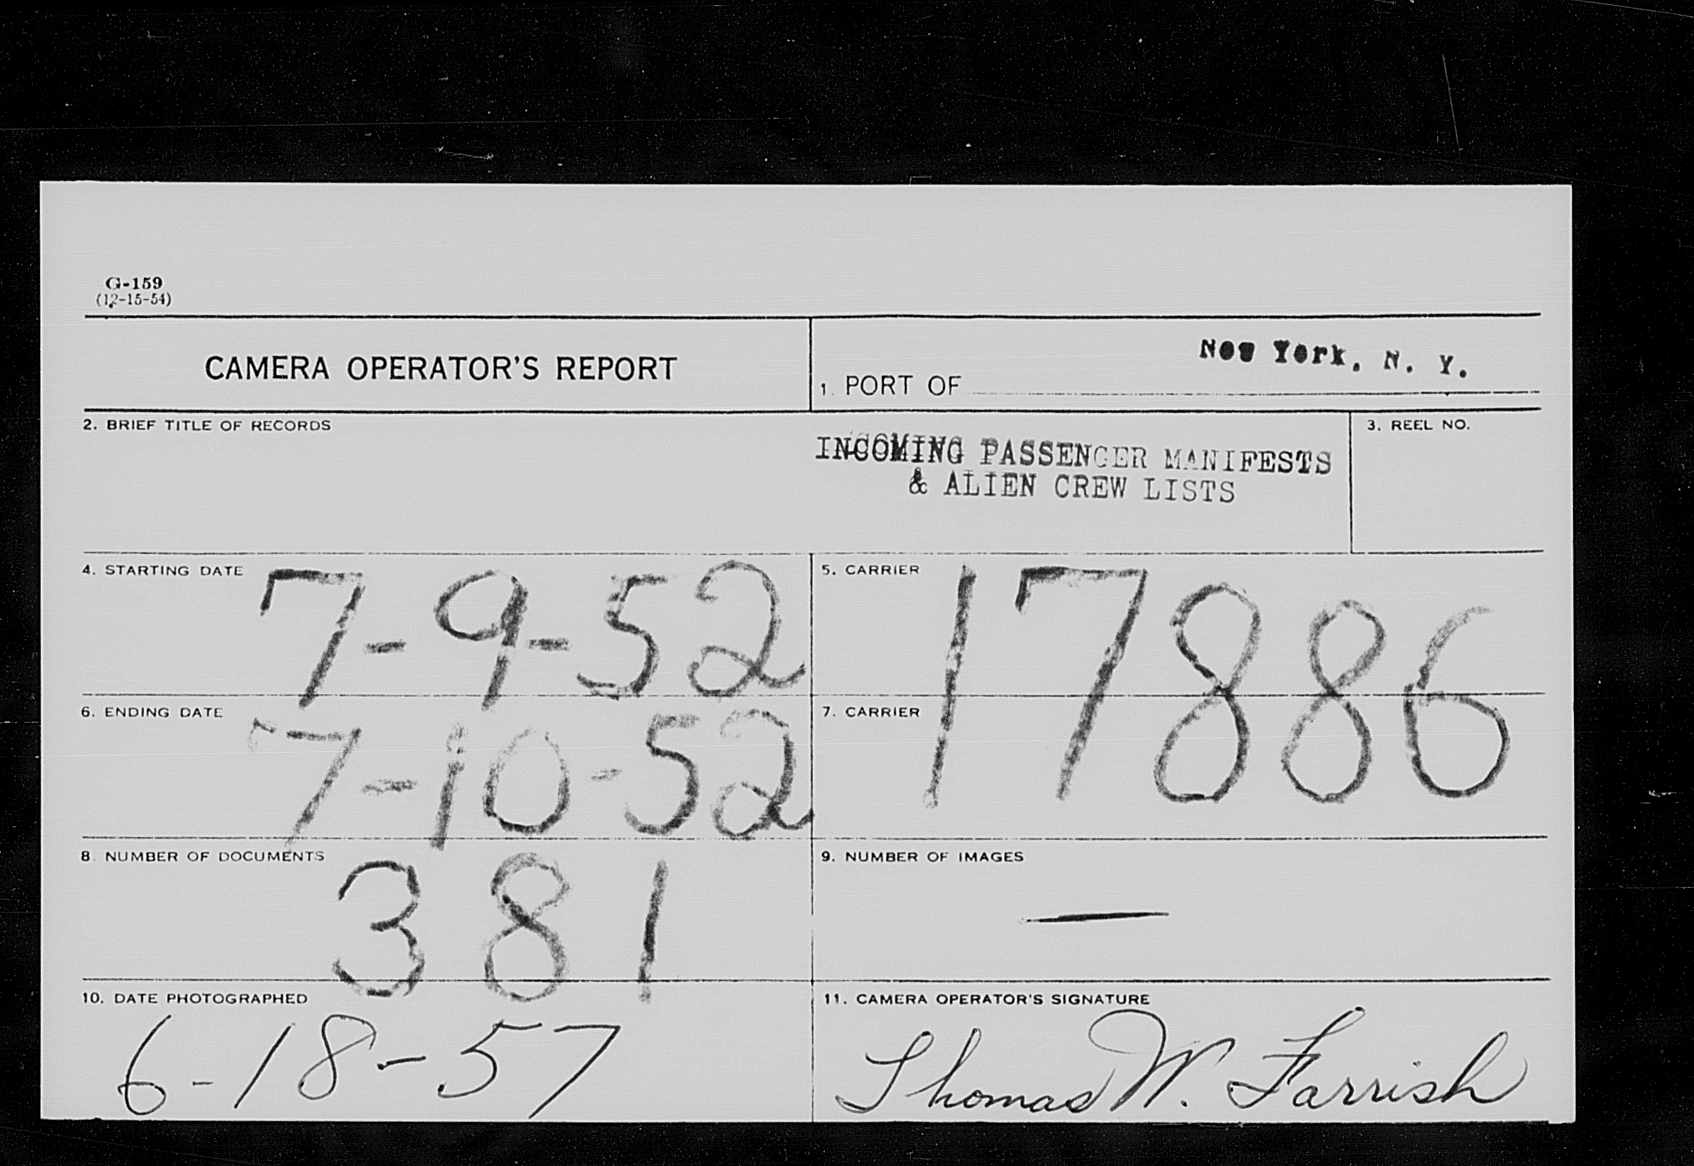 G-159
(12-15-54)
CAMERA OPERATOR'S REPORT
1. PORT OF New York, N. Y.
2. BRIEF TITLE OF RECORDS
INCOMING PASSENGER MANIFESTS
& ALIEN CREW LISTS
3. REEL NO.
4. STARTING DATE 7-9-52
5. CARRIER 17886
6. ENDING DATE 7-10-52
7. CARRIER
8. NUMBER OF DOCUMENTS 381
9. NUMBER OF IMAGES —
10. DATE PHOTOGRAPHED
6-18-57
11. CAMERA OPERATOR'S SIGNATURE
Thomas W. Farrish